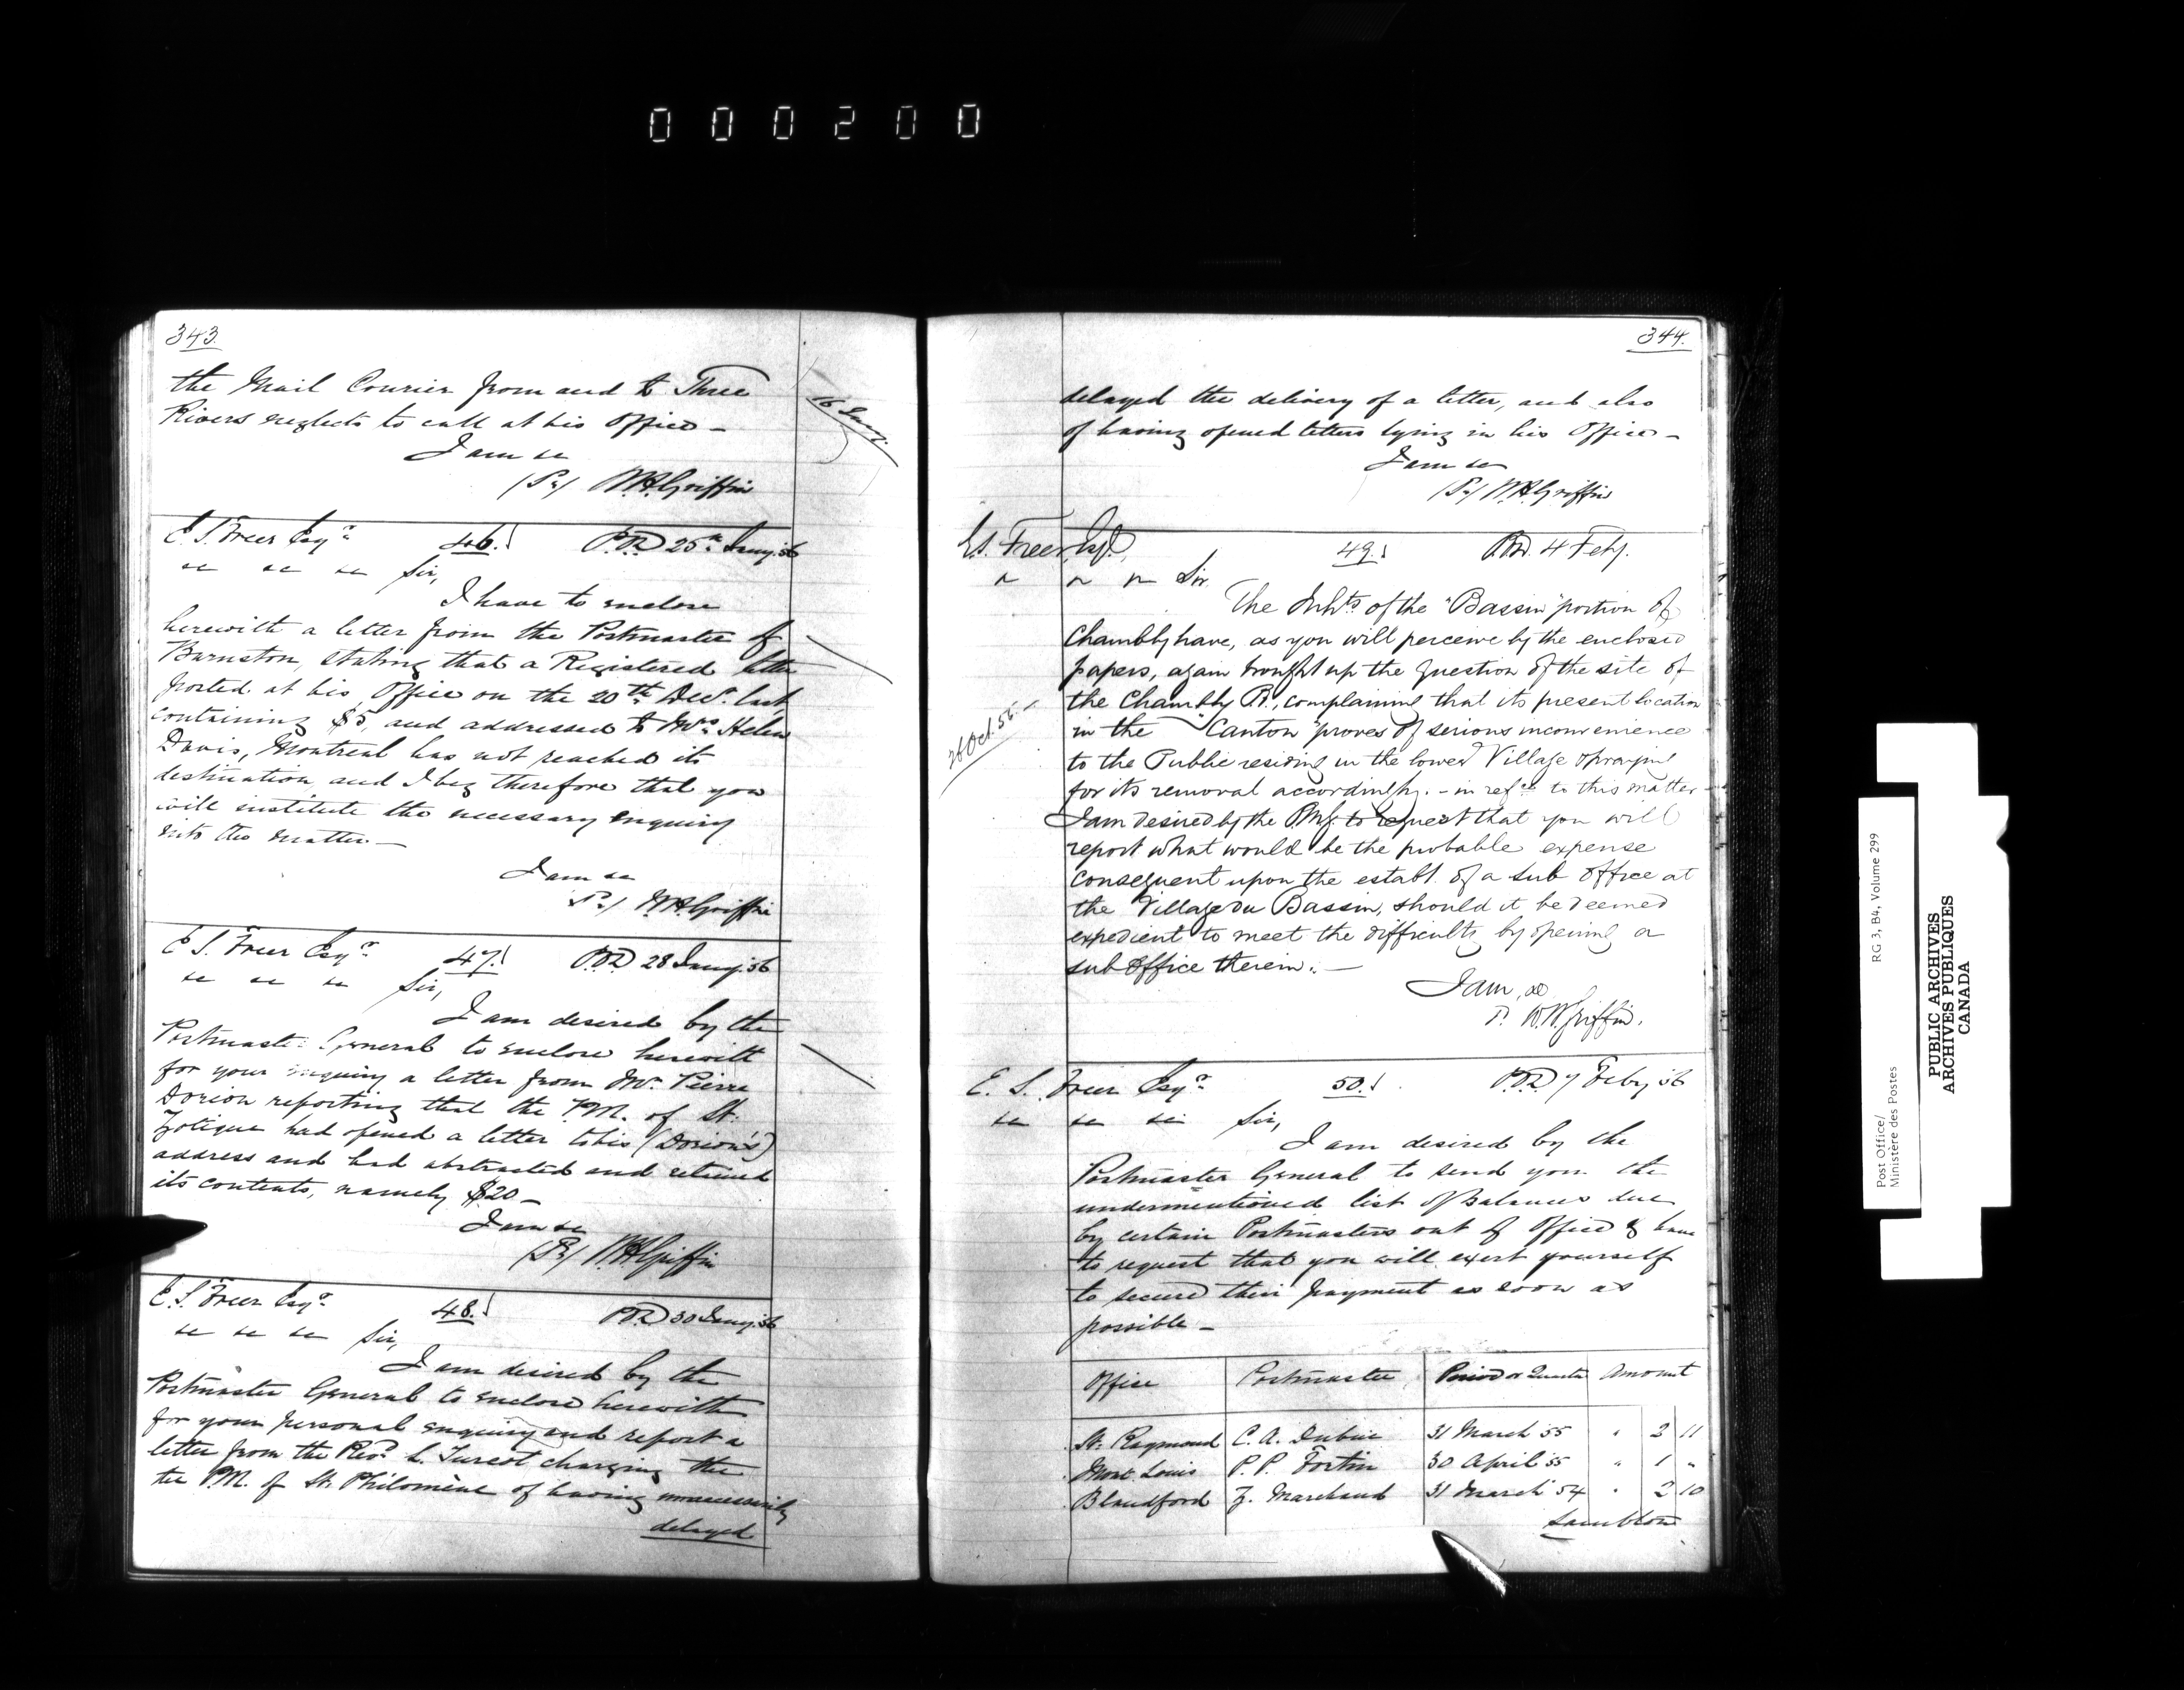 000200
343.
the Mail Courier from and to Three
Rivers neglects to call at his Office –
I am &c
(Sd) W.H. Griffin
16 Jany.
E. S. Freer Esqr. 46. P.O.D 25th Jany. 56
&c &c &c Sir,
I have to enclose
herewith a letter from the Postmaster of
Barnston, stating that a Registered letter
posted at his Office on the 20th Decr. last,
containing $5, and addressed to Mrs. Helen
Davis, Montreal has not reached its
destination, and I beg therefore that you
will institute the necessary enquiry
into the matter. —
I am &c
(Sd) W.H. Griffin
E. S. Freer Esqr. 47. P.O.D 28 Jany. 56
&c &c &c Sir,
I am desired by the
Postmaster General to enclose herewith
for your enquiry a letter from Mr. Pierre
Dorion reporting that the P.M. of St.
Zotique had opened a letter to his (Dorion's)
address and had abstracted and retained
its contents, namely $20 –
I am &c
(Sd) W.H. Griffin
E. S. Freer Esqr. 48. P.O.D 30 Jany. 56
&c &c &c Sir,
I am desired by the
Postmaster General to enclose herewith
for your personal enquiry and report a
letter from the Revd. L. Turcot charging the
the P.M. of St. Philomène of having unnecessarily
delayed
344.
delayed the delivery of a letter, and also
of having opened letters lying in his Office –
I am &c
(Sd) W.H. Griffin
E.S. Freer, Esq., 49. P.O.D. 4 Feby.
" " " Sir.
The Inhts of the "Bassin" portion of
Chambly have, as you will perceive by the enclosed
papers, again brought up the question of the site of
the Chambly P.O., complaining that its present location
in the "Canton" proves of serious inconvenience
26 Oct. 55. –
to the Public residing in the lower Village & praying
for its removal accordingly. – in refce to this matter
I am desired by the P.M.G. to request that you will
report what would be the probable expense
consequent upon the establt. of a sub office at
the Village du Bassin, should it be deemed
expedient to meet the difficulty by opening a
sub Office therein. —
I am, &c
S. W.H. Griffin.
E. S. Freer Esqr. 50. P.O.D 7 Feby 56
&c &c &c Sir,
I am desired by the
Postmaster General to send you the
undermentioned list of Balances due
by certain Postmasters out of Office & have
to request that you will exert yourself
to secure their payment as soon as
possible –
Office Postmaster Period or Quarter Amount
St. Raymond C. A. Dubuc 31 March 55 " 2 11
Mont Louis P. P. Fortin 30 April 55 " 1 "
Blandford Z. Marchand 31 March 54 " 2 10
Lambton
Post Office/ RG 3, B4, Volume 299
Ministère des Postes
PUBLIC ARCHIVES
ARCHIVES PUBLIQUES
CANADA